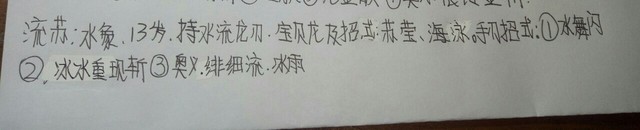 流苏:水象、13岁.持水流龙刀.宝贝龙及招式:苏莹、海凉。手刀招式:①水舞闪
②.冰水重现斩③奥义.绯细流.水雨